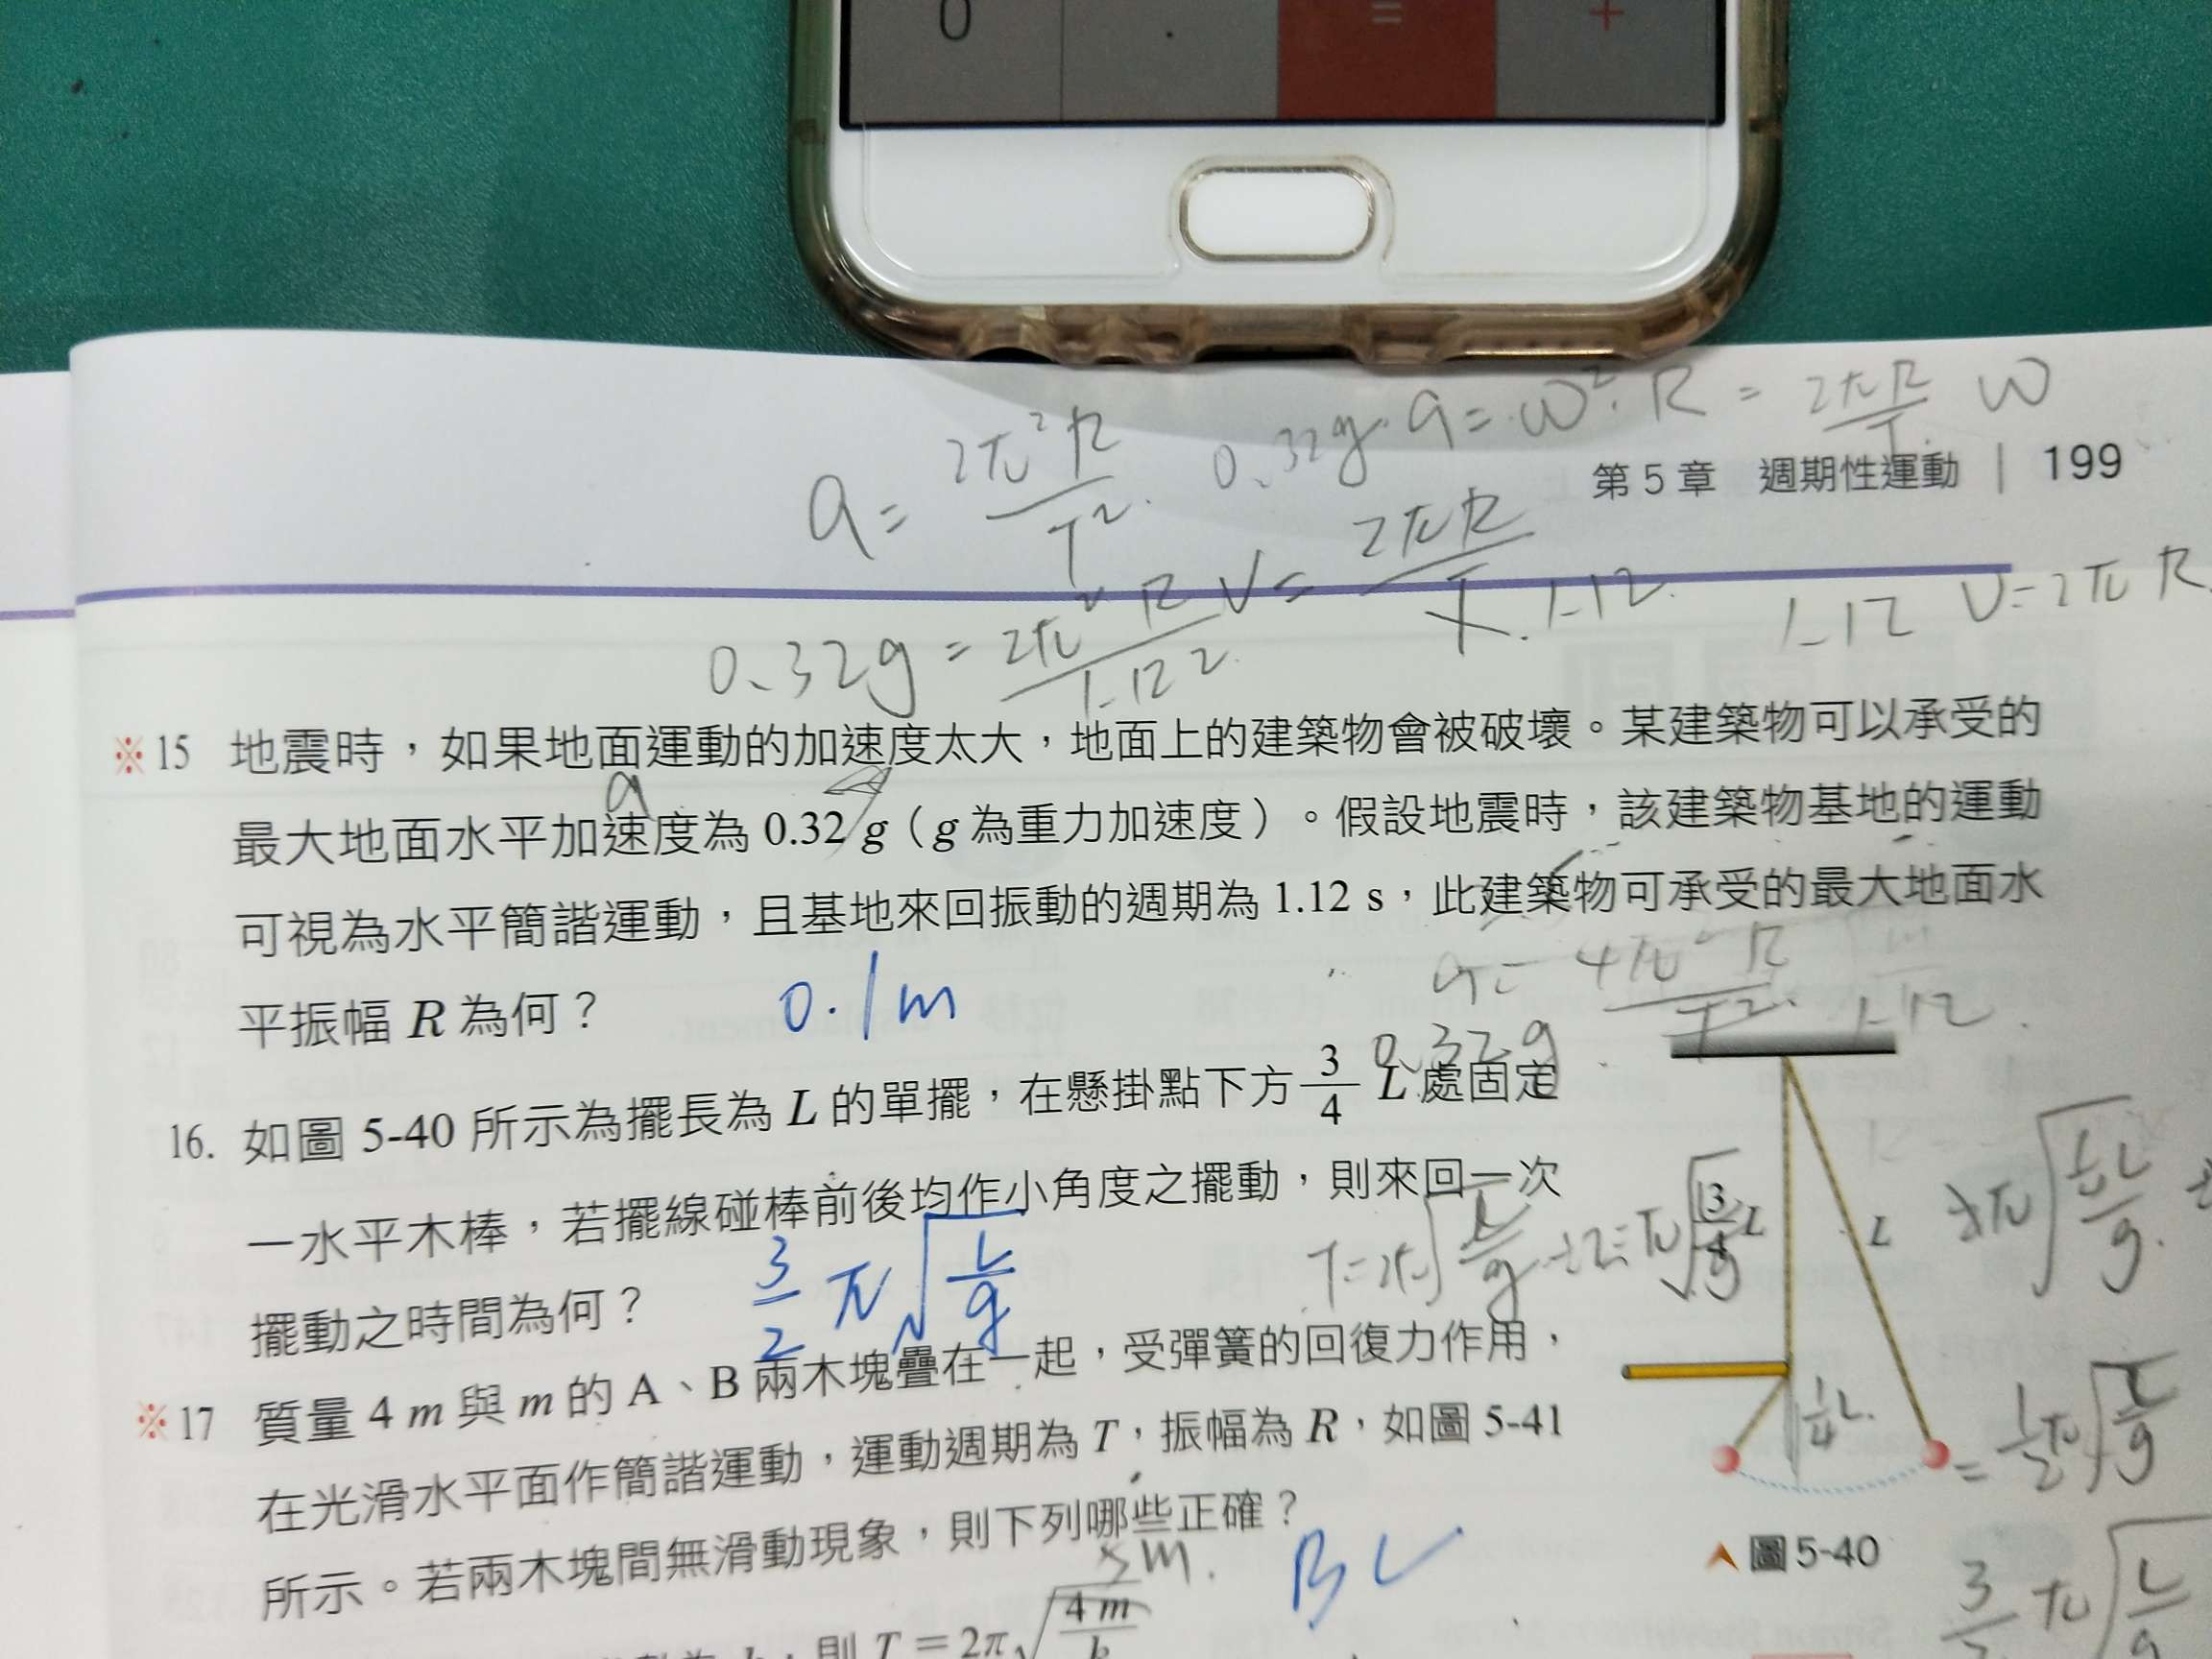 0 . = +
a = 2π²R/T² 0.32g. a = w². R = 2πR/T. w
第5章 週期性運動 | 199
V = 2πR/T. 1.12 1.12 V = 2πR
0.32g = 2π²R/1.12²
※15 地震時，如果地面運動的加速度太大，地面上的建築物會被破壞。某建築物可以承受的
a
最大地面水平加速度為 0.32 g（g 為重力加速度）。假設地震時，該建築物基地的運動
可視為水平簡諧運動，且基地來回振動的週期為 1.12 s，此建築物可承受的最大地面水
a = 4π²R/T² 1.12
平振幅 R 為何？ 0.1m
0.32g
16. 如圖 5-40 所示為擺長為 L 的單擺，在懸掛點下方 3/4 L 處固定
一水平木棒，若擺線碰棒前後均作小角度之擺動，則來回一次
擺動之時間為何？ 3/2 π√(L/g)
L
1/4 L
= 1/2 π√(L/g)
圖 5-40
3/2 π√(L/g)
※17 質量 4 m 與 m 的 A、B 兩木塊疊在一起，受彈簧的回復力作用，
在光滑水平面作簡諧運動，運動週期為 T，振幅為 R，如圖 5-41
所示。若兩木塊間無滑動現象，則下列哪些正確？
5m.
，則 T = 2π√(4m/k)